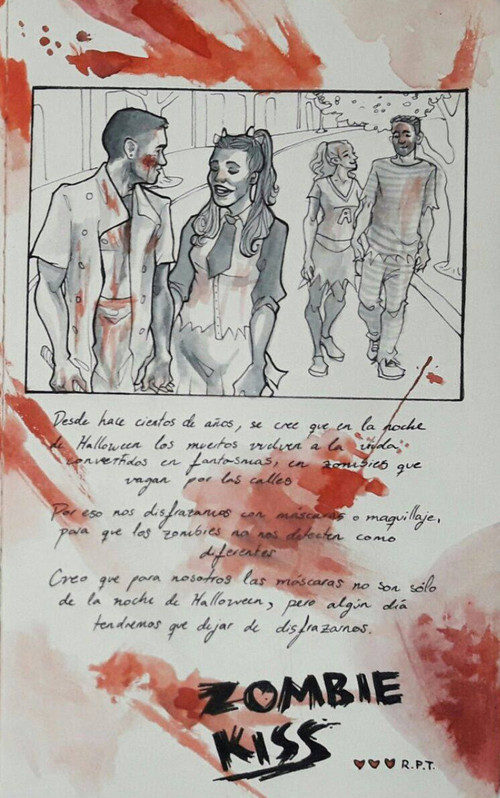 A
Desde hace cientos de años, se cree que en la noche
de Halloween los muertos vuelven a la vida
convertidos en fantasmas, en zombies que
vagan por las calles
Por eso nos disfrazamos con máscaras o maquillaje,
para que los zombies no nos detecten como
diferentes
Creo que para nosotros las máscaras no son sólo
de la noche de Halloween, pero algún día
tendremos que dejar de disfrazarnos.
ZOMBIE
KISS
R.P.T.